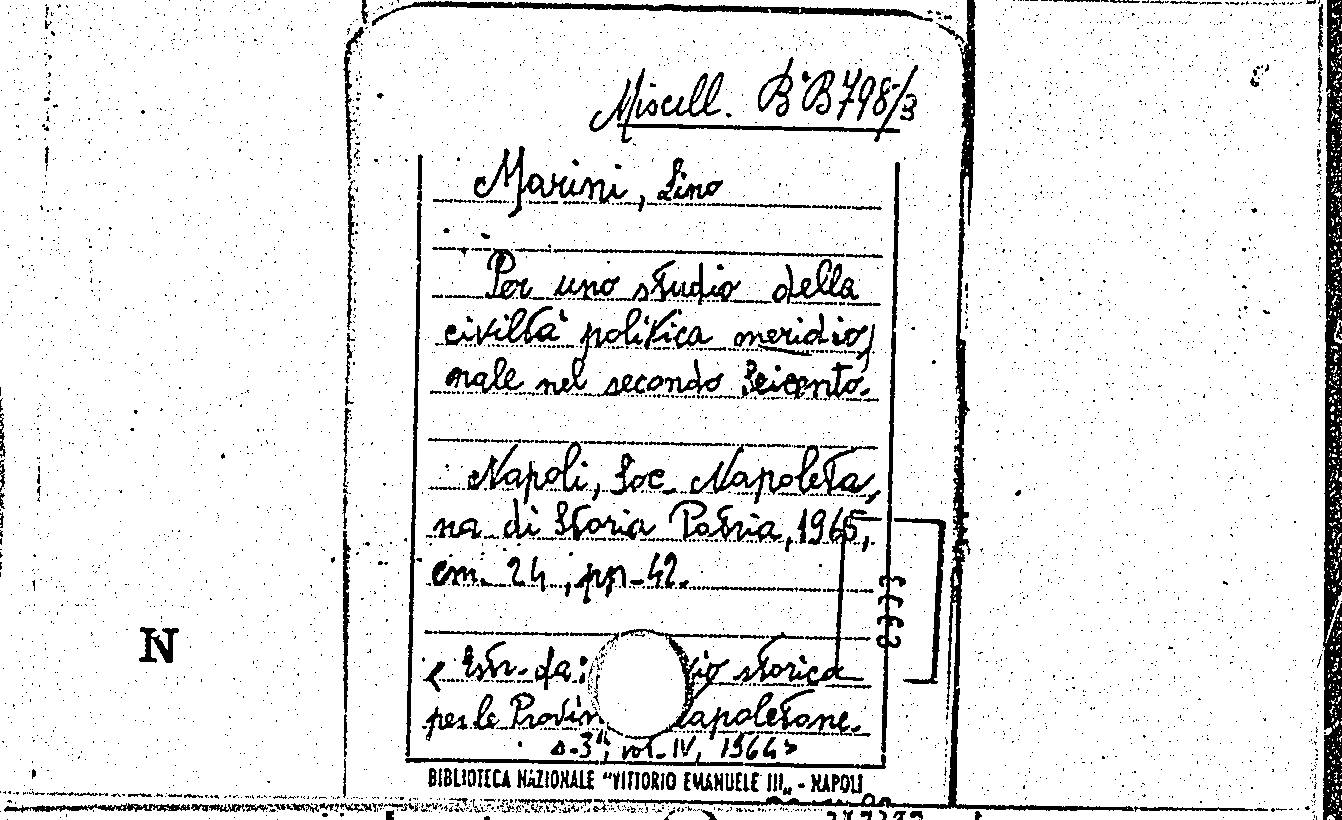 Miscell. B'B798/3
Marini, Lino
Per uno studio della
civiltà politica meridio
nale nel secondo Seicento.
Napoli, Soc. Napoleta,
na di Storia Patria, 1965,
cm. 24, pp. 42.
< Estr. da: io storico
per le Provin apoletane.
a. 3ª, vol. IV, 1964>
BIBLIOTECA NAZIONALE "VITTORIO EMANUELE III„ - NAPOLI
N